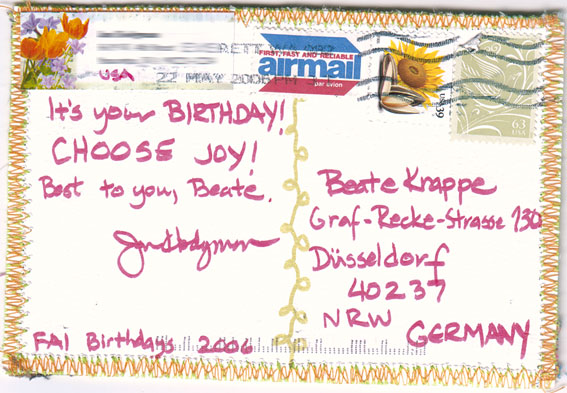 USA
22 MAY 2006 PM
FIRST, FAST AND RELIABLE
airmail
par avion
USA 39
63
USA
It's your BIRTHDAY!
CHOOSE JOY!
Best to you, Beate.
FAI Birthdays 2006
Beate Krappe
Graf-Recke-Strasse 130
Düsseldorf
40237
NRW
GERMANY